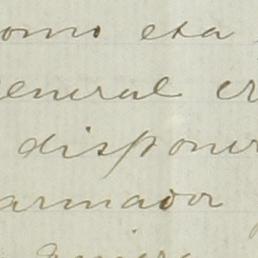 como esa
eneral cr
disponer
armador